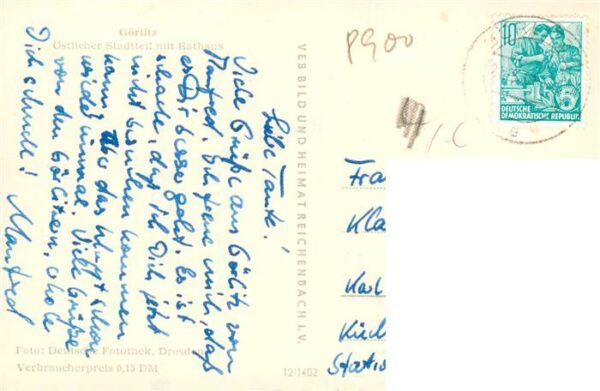 Görlitz
Östlicher Stadtteil mit Rathaus
Liebe Tante!
Viele Grüße aus Görlitz von
Manfred. Ich freue mich, daß
es Dir besser geht. Es ist
schade, daß ich Dich jetzt
nicht besuchen kommen
kann. Aber das klappt schon
wieder einmal. Viele Grüße
von den Görlitzern. Erhole
Dich schnell! Manfred
Foto: Deutsche Fotothek, Dresden
Verbraucherpreis 0,15 DM
VEB BILD UND HEIMAT REICHENBACH I. V.
12/1402
8900
10
5
DEUTSCHE
DEMOKRATISCHE REPUBLIK
Fra
Kla
Karl
Kirch
Statio